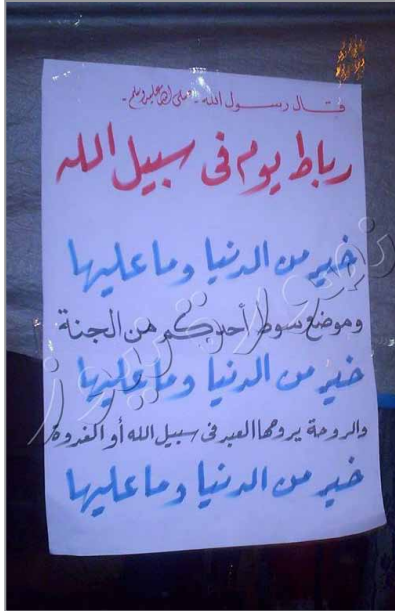 قال رسول الله - صلى الله عليه وسلم -
رباط يوم فى سبيل الله
خير من الدنيا وما عليها
وموضع سوط أحدكم من الجنة
خير من الدنيا وما عليها
والروحة يروحها العبد فى سبيل الله أو الغدوة
خير من الدنيا وما عليها